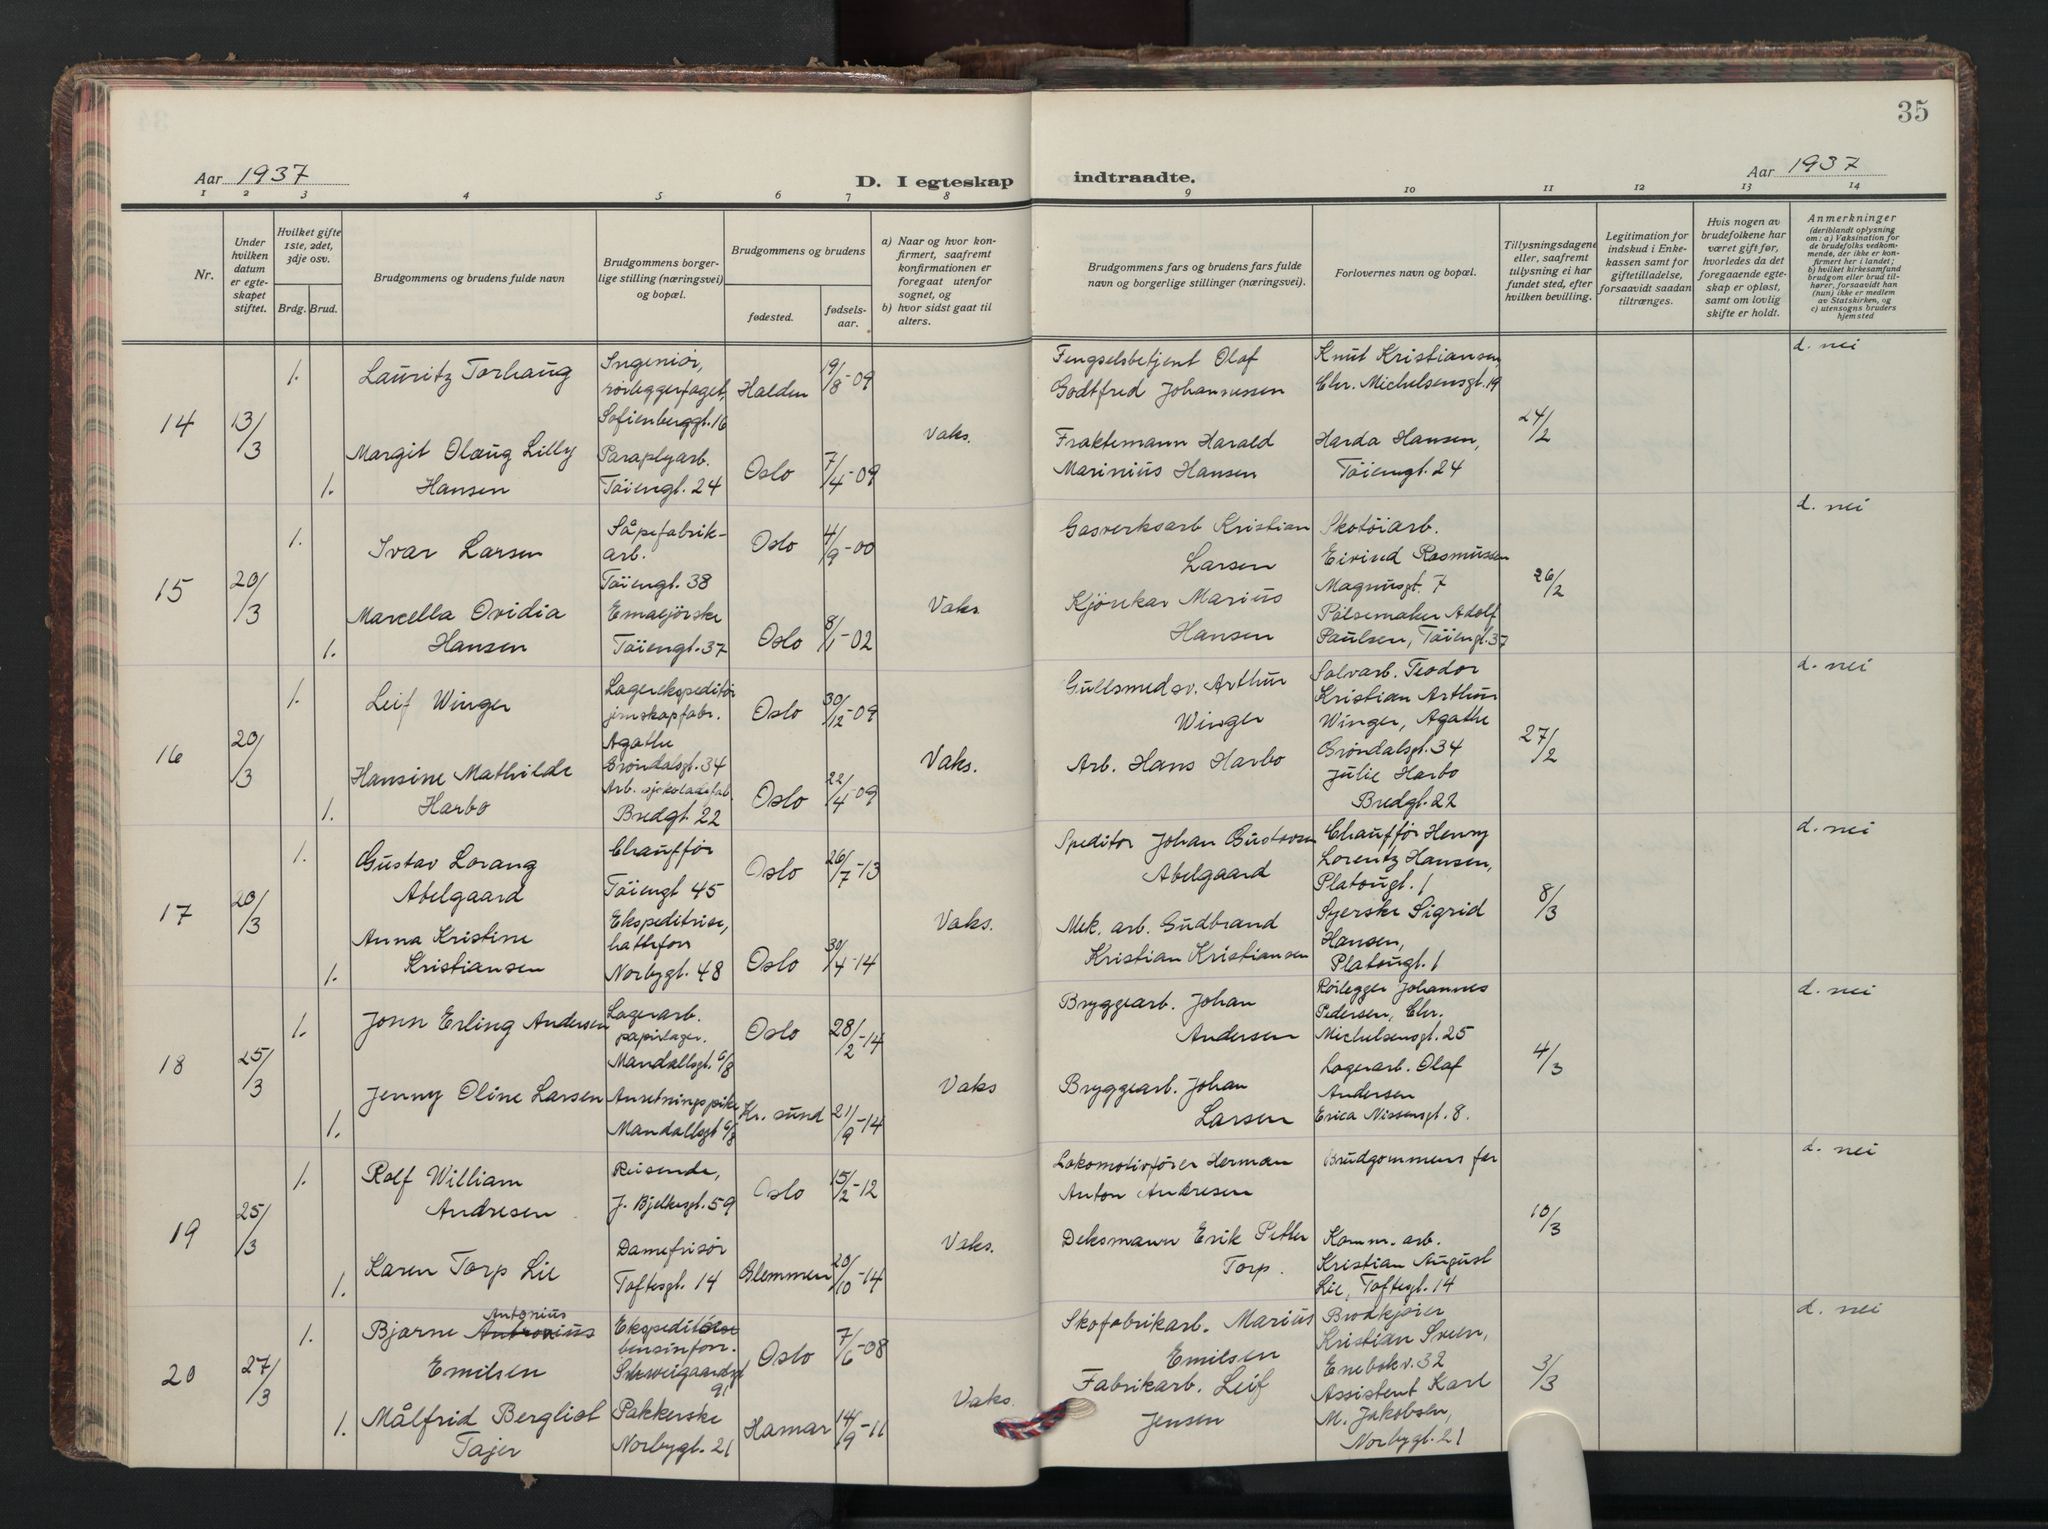 35
Aar 1937
D. I egteskap indtraadte.
Aar 1937
1 2 3 4 5 6 7 8 9 10 11 12 13 14
Nr.
Under hvilken datum er egteskapet stiftet.
Hvilket gifte 1ste, 2det, 3dje osv.
Brdg. Brud.
Brudgommens og brudens fulde navn
Brudgommens borgerlige stilling (næringsvei) og bopæl.
Brudgommens og brudens
fødested.
fødselsaar.
a) Naar og hvor konfirmert, saafremt konfirmationen er foregaat utenfor sognet, og
b) hvor sidst gaat til alters.
Brudgommens fars og brudens fars fulde navn og borgerlige stillinger (næringsvei).
Forlovernes navn og bopæl.
Tillysningsdagene eller, saafremt tillysning ei har fundet sted, efter hvilken bevilling.
Legitimation for indskud i Enkekassen samt for giftetilladelse, forsaavidt saadan tiltrænges.
Hvis nogen av brudefolkene har været gift før, hvorledes da det foregaaende egteskap er opløst, samt om lovlig skifte er holdt.
Anmerkninger
(deriblandt oplysning om: a) Vaksination for de brudefolks vedkommende, der ikke er konfirmert her i landet;
b) hvilket kirkesamfund brudgom eller brud tilhører, forsaavidt han (hun) ikke er medlem av Statskirken, og
c) utensogns bruders hjemsted
14 13/3
1. Lauritz Torhaug
Ingeniør, rørleggerfaget, Sofienberggt. 16
Halden 19/8-09
Fengselsbetjent Olaf Godtfred Johannessen
Knut Kristiansen, Chr. Michelsensgt. 19
d. nei
1. Margit Olaug Lilly Hansen
Paraplyarb. Tøiengt. 24
Oslo 7/4-09
Vaks.
Fraktemann Harald Marinius Hansen
Harda Hansen, Tøiengt. 24
24/2
15 20/3
1. Ivar Larsen
Såpefabrik-arb. Tøiengt. 38
Oslo 4/9-00
Gasverksarb Kristian Larsen
Skotøiarb. Eivind Rasmussen Magnusgt. 7
d. nei
1. Marcella Ovidia Hansen
Emaljørske Tøiengt. 37
Oslo 8/1-02
Vaks.
Kjørekar Marius Hansen
Pølsemaker Adolf Paulsen, Tøiengt. 37
26/2
16 20/3
1. Leif Winger
Lagerekspeditør jernskapfabr. Agathe Grøndalsgt. 34
Oslo 30/12-09
Gullsmedsv. Arthur Winger
Sølvarb. Teodor Kristian Arthur Winger, Agathe Grøndalsgt. 34
d. nei
1. Hansine Mathilde Harbo
Arb. sjokoladefab. Bredgt. 22
Oslo 22/4-09
Vaks.
Arb. Hans Harbo
Julie Harbo Bredgt. 22
27/2
17 20/3
1. Gustav Lorang Abelgaard
Chauffør Tøiengt 45
Oslo 26/7-13
Speditør Johan Gustavsen Abelgaard
Chauffør Henry Lorentz Hansen, Platougt. 1
d. nei
1. Anna Kristine Kristiansen
Ekspeditrise, hattefor. Norbygt. 48
Oslo 30/4-14
Vaks.
Mek. arb. Gudbrand Kristian Kristiansen
Syerske Sigrid Hansen, Platougt. 1
8/3
18 25/3
1. John Erling Andersen
Lagerarb. papirlager. Mandallsgt. 6/8
Oslo 28/2-14
Bryggearb. Johan Andersen
Rørlegger Johannes Pedersen, Chr. Michelsensgt. 25
d. nei
1. Jenny Oline Larsen
Anretningspike Mandallsgt 6/8
Kr. sund 21/9-14
Vaks
Bryggearb. Johan Larsen
Lagerarb. Olaf Andersen Erica Nissensgt. 8.
4/3
19 25/3
1. Rolf William Andresen
Reisende, J. Bjelkesgt. 59
Oslo 15/2-12
Lokomotivfører Herman Anton Andresen
Brudgommens far
d. nei
1. Karen Torp Lie
Damefrisør Toftesgt. 14
Glemmen 20/10-14
Vaks.
Deksmann Erik Petter Torp.
Komm. arb. Kristian August Lie, Toftesgt. 14
10/3
20 27/3
1. Bjarne Antonius Emilsen
Ekspeditør bensinforr. Schweigaardsgt 91
Oslo 7/6-08
Skofabrikarb. Marius Emilsen
Brødkjører Kristian Sveen, Enebakv. 32
d. nei
1. Målfrid Bergliot Tajer
Pakkerske Norbygt. 21
Hamar 14/9-11
Vaks.
Fabrikarb. Leif Jensen
Assistent Karl M. Jakobsen, Norbygt. 21
3/3